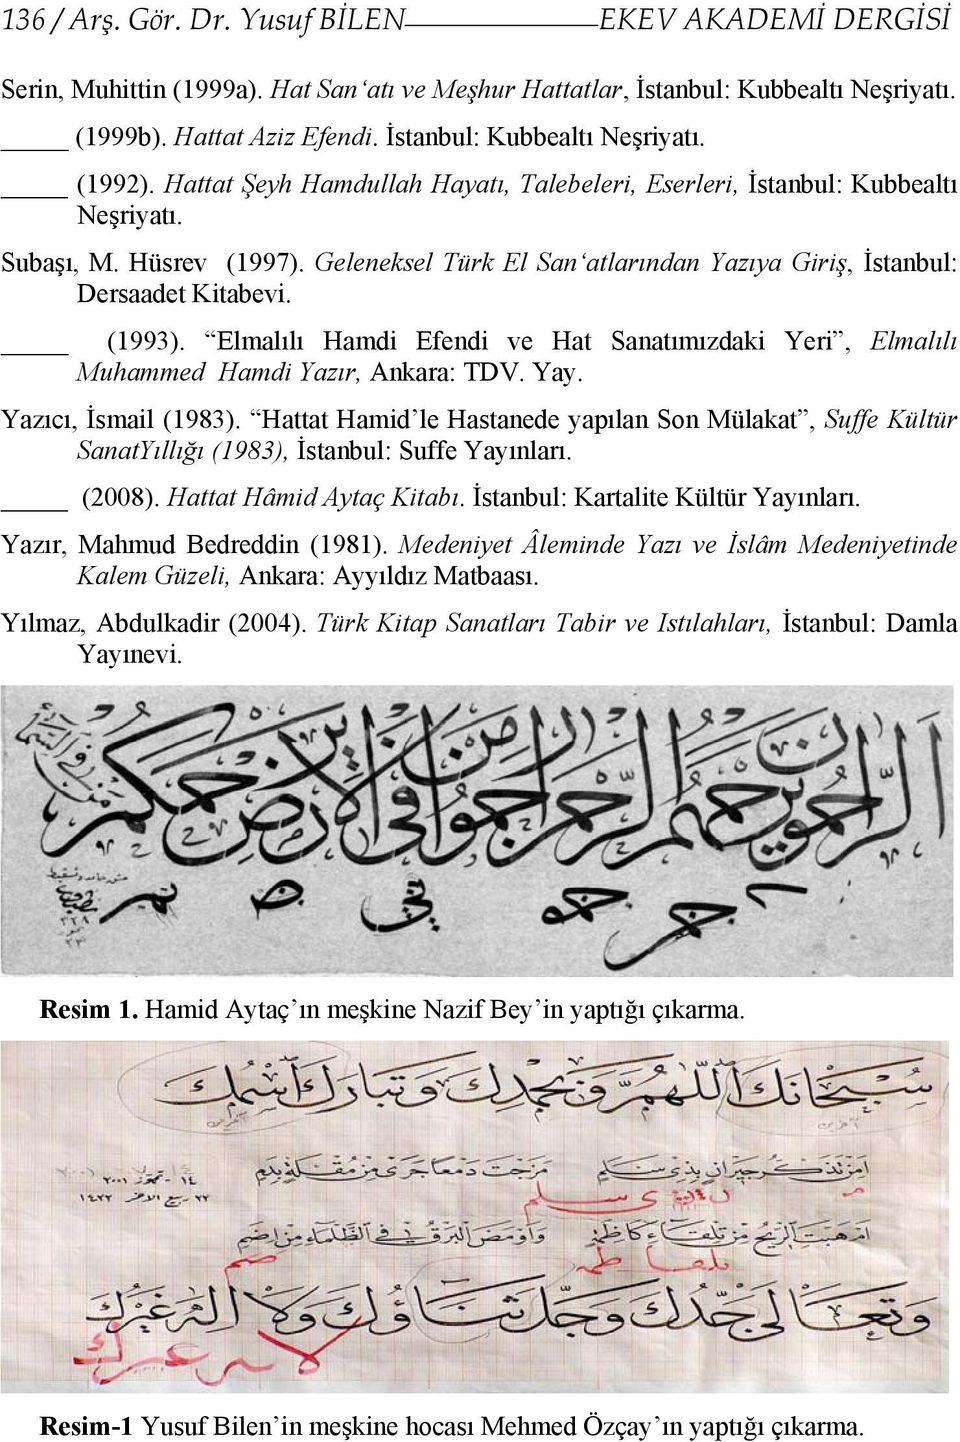 136 / Arş. Gör. Dr. Yusuf BİLEN EKEV AKADEMİ DERGİSİ
Serin, Muhittin (1999a). Hat San‘atı ve Meşhur Hattatlar, İstanbul: Kubbealtı Neşriyatı.
_____ (1999b). Hattat Aziz Efendi. İstanbul: Kubbealtı Neşriyatı.
_____ (1992). Hattat Şeyh Hamdullah Hayatı, Talebeleri, Eserleri, İstanbul: Kubbealtı
Neşriyatı.
Subaşı, M. Hüsrev (1997). Geleneksel Türk El San‘atlarından Yazıya Giriş, İstanbul:
Dersaadet Kitabevi.
_____ (1993). “Elmalılı Hamdi Efendi ve Hat Sanatımızdaki Yeri”, Elmalılı
Muhammed Hamdi Yazır, Ankara: TDV. Yay.
Yazıcı, İsmail (1983). “Hattat Hamid’le Hastanede yapılan Son Mülakat”, Suffe Kültür
SanatYıllığı (1983), İstanbul: Suffe Yayınları.
_____ (2008). Hattat Hâmid Aytaç Kitabı. İstanbul: Kartalite Kültür Yayınları.
Yazır, Mahmud Bedreddin (1981). Medeniyet Âleminde Yazı ve İslâm Medeniyetinde
Kalem Güzeli, Ankara: Ayyıldız Matbaası.
Yılmaz, Abdulkadir (2004). Türk Kitap Sanatları Tabir ve Istılahları, İstanbul: Damla
Yayınevi.
الراحمون يرحمهم الرحمن ارحموا من في الارض يرحمكم
من في السماء
Resim 1. Hamid Aytaç’ın meşkine Nazif Bey’in yaptığı çıkarma.
سُبْحَانَكَ اَللّٰهُمَّ وَبِحَمْدِكَ وَتَبَارَكَ اسْمُكَ
اَمِنْ تَذَكُّرِ جِيرَانٍ بِذِي سَلَمِ مَزَجْتَ دَمْعًا جَرَى مِنْ مُقْلَةٍ بِدَمِ
١٤ - تموز - ٢٠٠١
٢٢ ربيع الاخر ١٤٢٢
اَمْ هَبَّتِ الرِّيحُ مِنْ تِلْقَاءِ كَاظِمَةٍ وَاَوْمَضَ الْبَرْقُ فِي الظَّلْمَاءِ مِنْ اِضَمِ
وَتَعَالَى جَدُّكَ وَجَلَّ ثَنَاؤُكَ وَلَا اِلٰهَ غَيْرُكَ
Resim-1 Yusuf Bilen’in meşkine hocası Mehmed Özçay’ın yaptığı çıkarma.